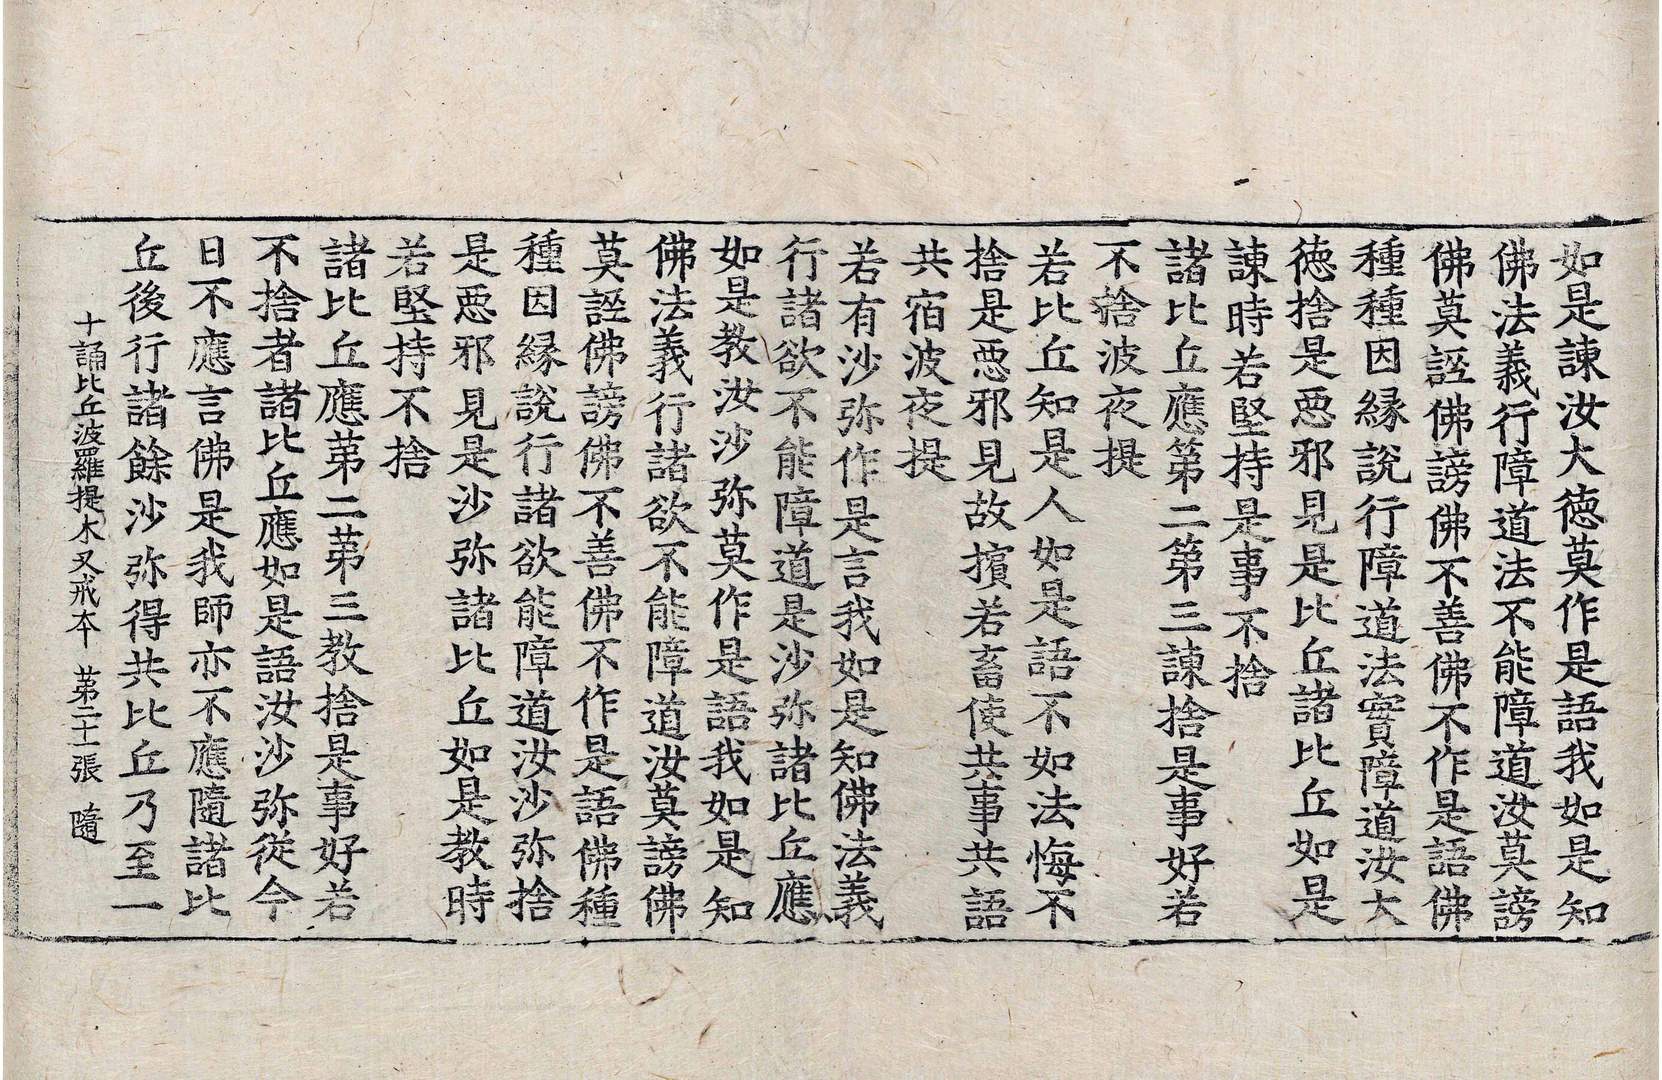 如是諫汝大德莫作是語我如是知
佛法義行障道法不能障道汝莫謗
佛莫誣佛謗佛不善佛不作是語佛
種種因縁說行障道法實障道汝大
徳捨是惡邪見是比丘諸比丘如是
諫時若堅持是事不捨
諸比丘應第二第三諫捨是事好若
不捨波夜提
若比丘知是人如是語不如法悔不
捨是惡邪見故擯若畜使共事共語
共宿波夜提
若有沙弥作是言我如是知佛法義
行諸欲不能障道是沙弥諸比丘應
如是教汝沙弥莫作是語我如是知
佛法義行諸欲不能障道汝莫謗佛
莫誣佛謗佛不善佛不作是語佛種
種因縁說行諸欲能障道汝沙弥捨
是惡邪見是沙弥諸比丘如是教時
若堅持不捨
諸比丘應苐二苐三教捨是事好若
不捨者諸比丘應如是語汝沙弥從今
日不應言佛是我師亦不應隨諸比
丘後行諸餘沙弥得共比丘乃至一
十誦比丘波羅提木叉戒本 苐二十一張 隨